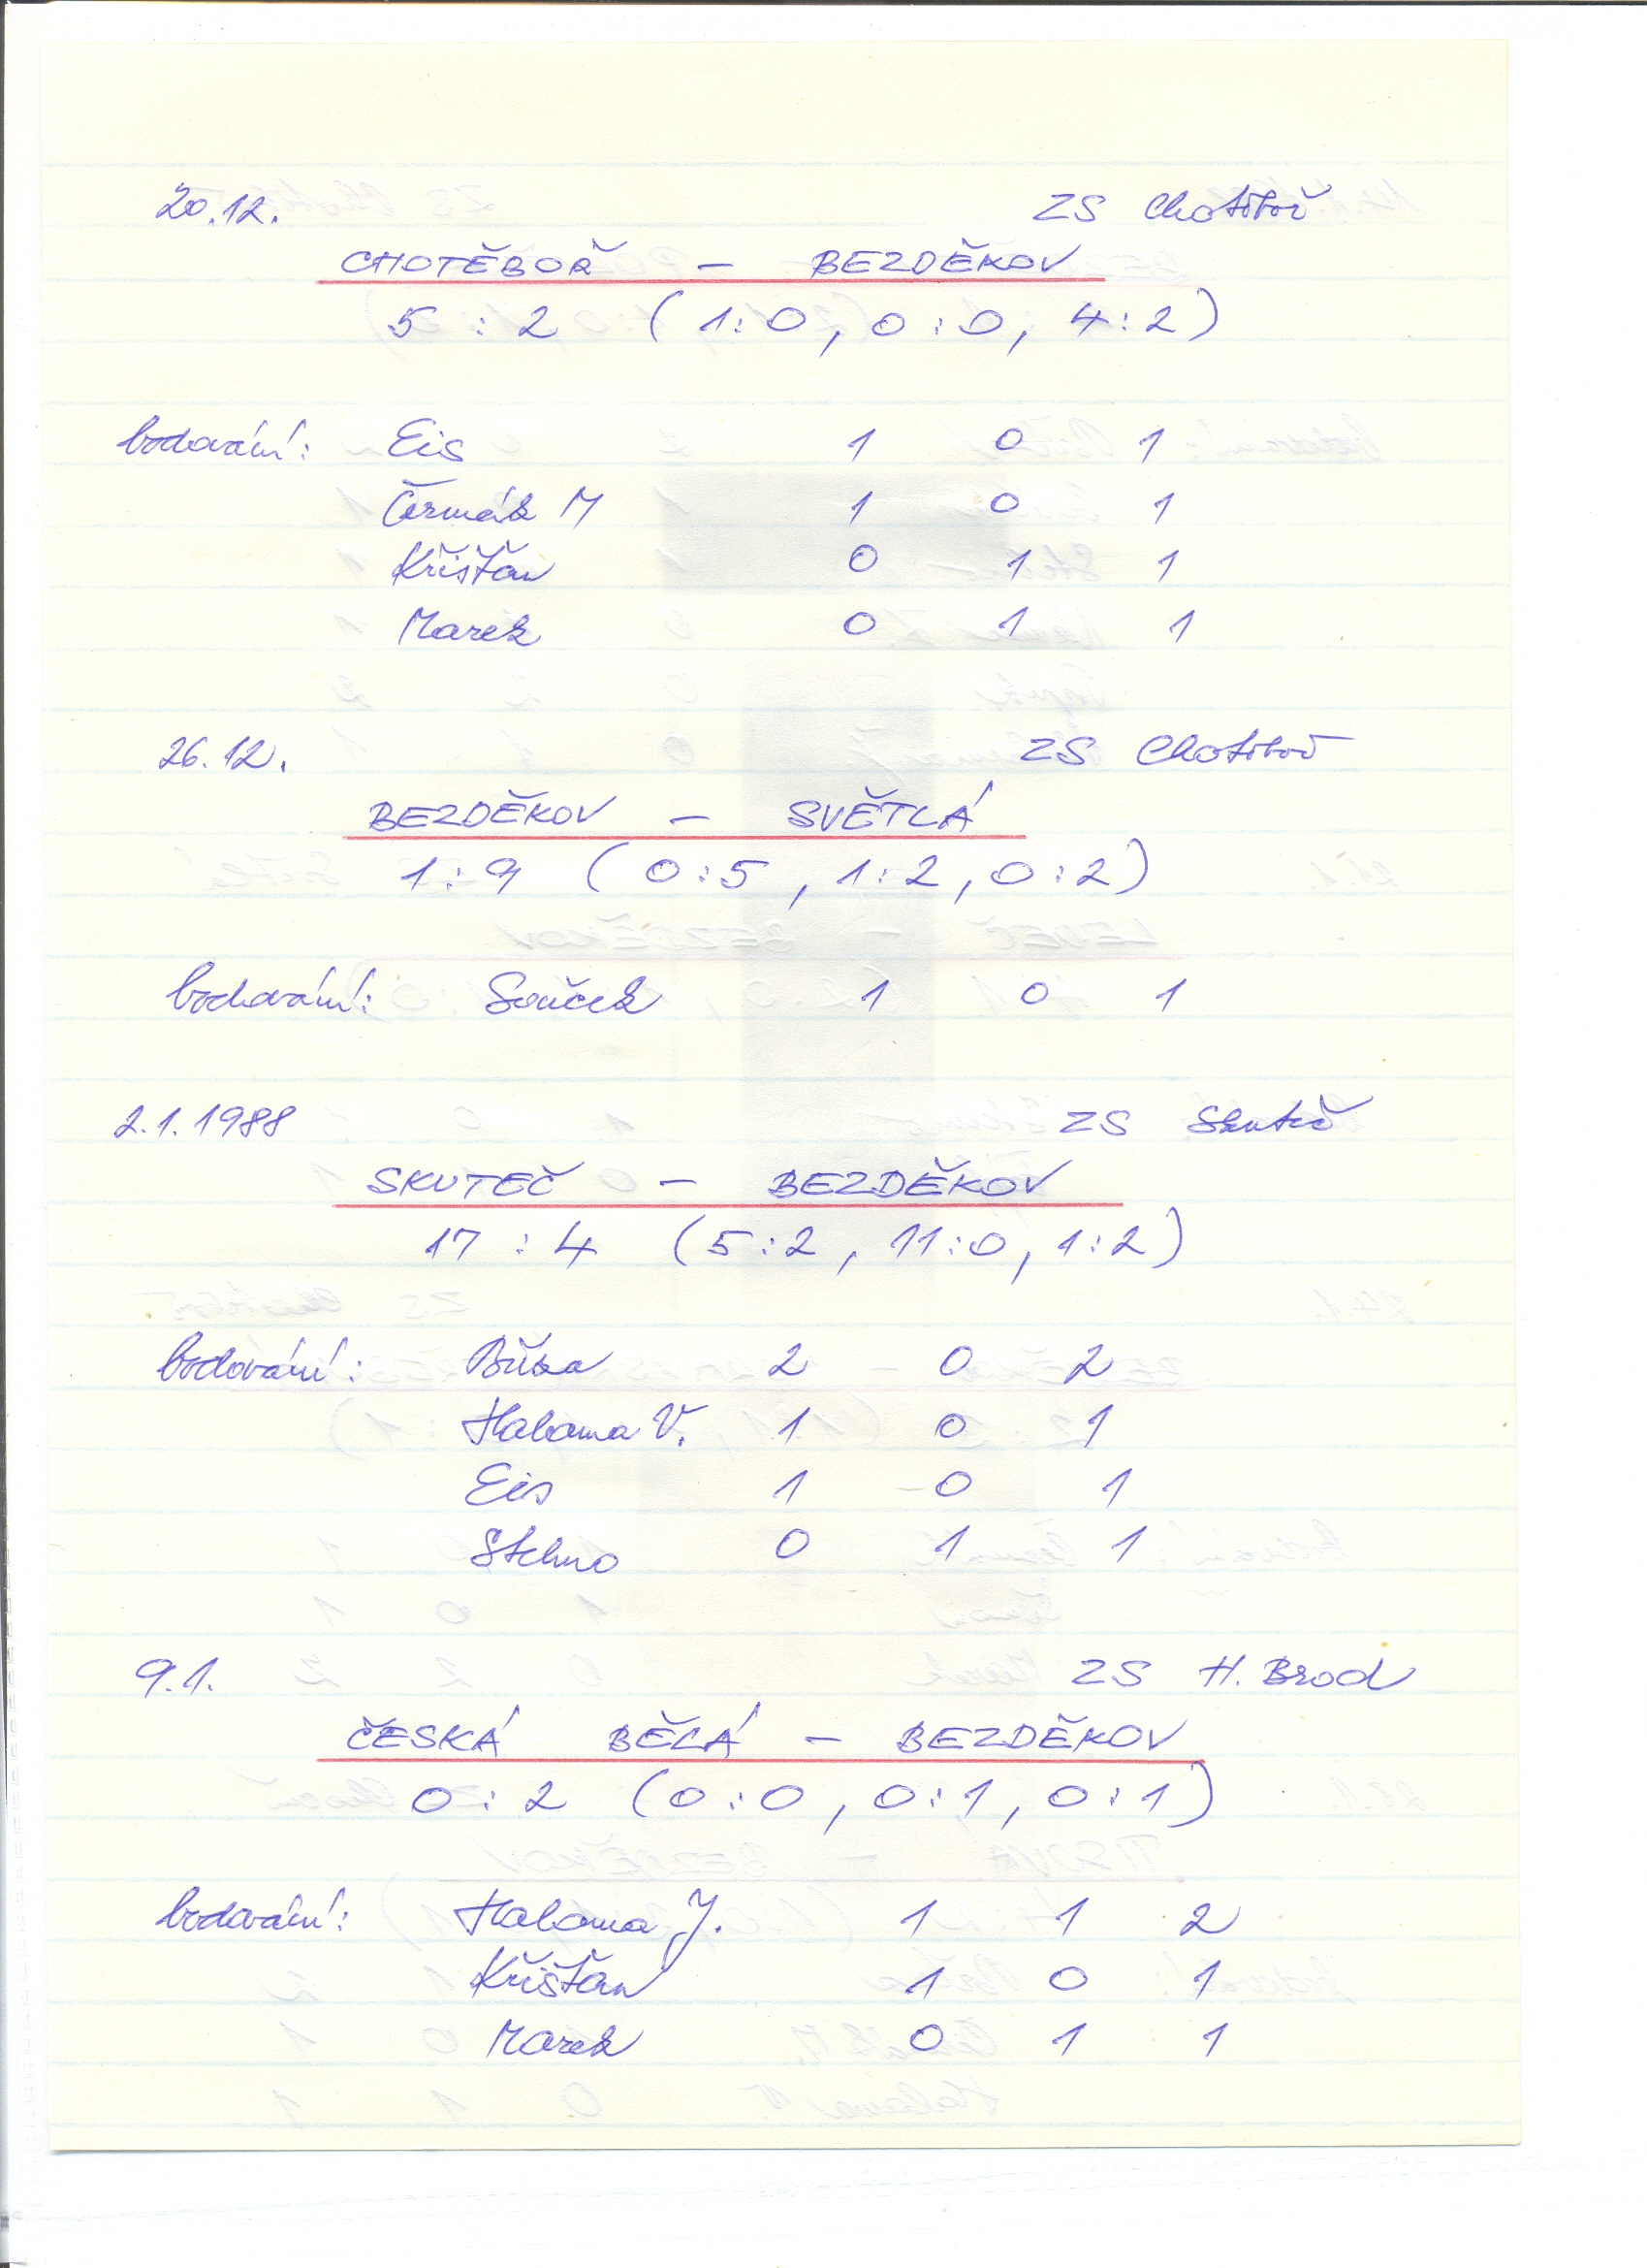 20.12. ZS Chotěboř
CHOTĚBOŘ – BEZDĚKOV
5 : 2 ( 1:0, 0:0, 4:2 )
bodování: Eis 1 0 1
Čermák M 1 0 1
Křišťan 0 1 1
Marek 0 1 1
26.12. ZS Chotěboř
BEZDĚKOV – SVĚTLÁ
1 : 9 ( 0:5, 1:2, 0:2 )
bodování: Souček 1 0 1
2.1.1988 ZS Skuteč
SKUTEČ – BEZDĚKOV
17 : 4 ( 5:2, 11:0, 1:2 )
bodování: Bůža 2 0 2
Halama V. 1 0 1
Eis 1 0 1
Stehno 0 1 1
9.1. ZS H. Brod
ČESKÁ BĚLÁ – BEZDĚKOV
0 : 2 ( 0:0, 0:1, 0:1 )
bodování: Halama J. 1 1 2
Křišťan 1 0 1
Marek 0 1 1